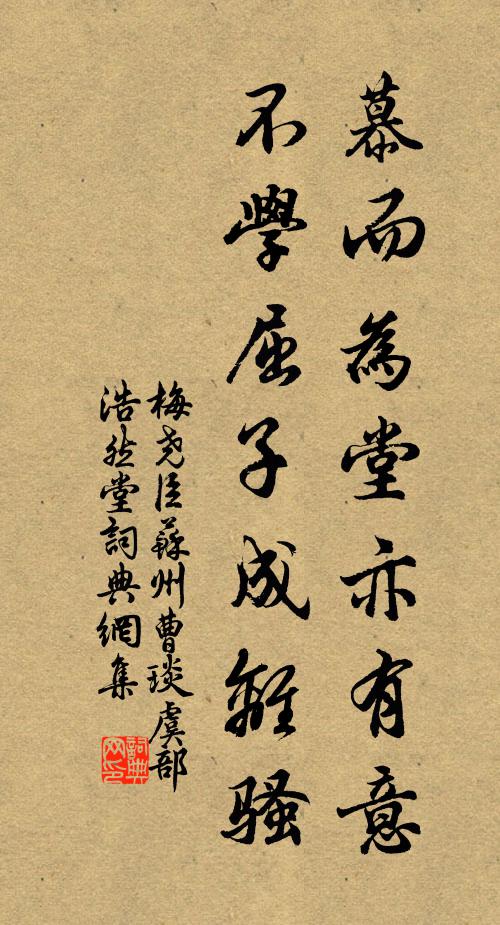 慕而為堂亦有意
不學屈子成離騷
梅堯臣蘇州曹琰虞部
浩然堂詞典網集
詞典网印